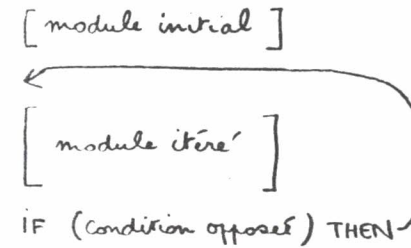 [module initial]
[module itéré]
IF (condition opposée) THEN